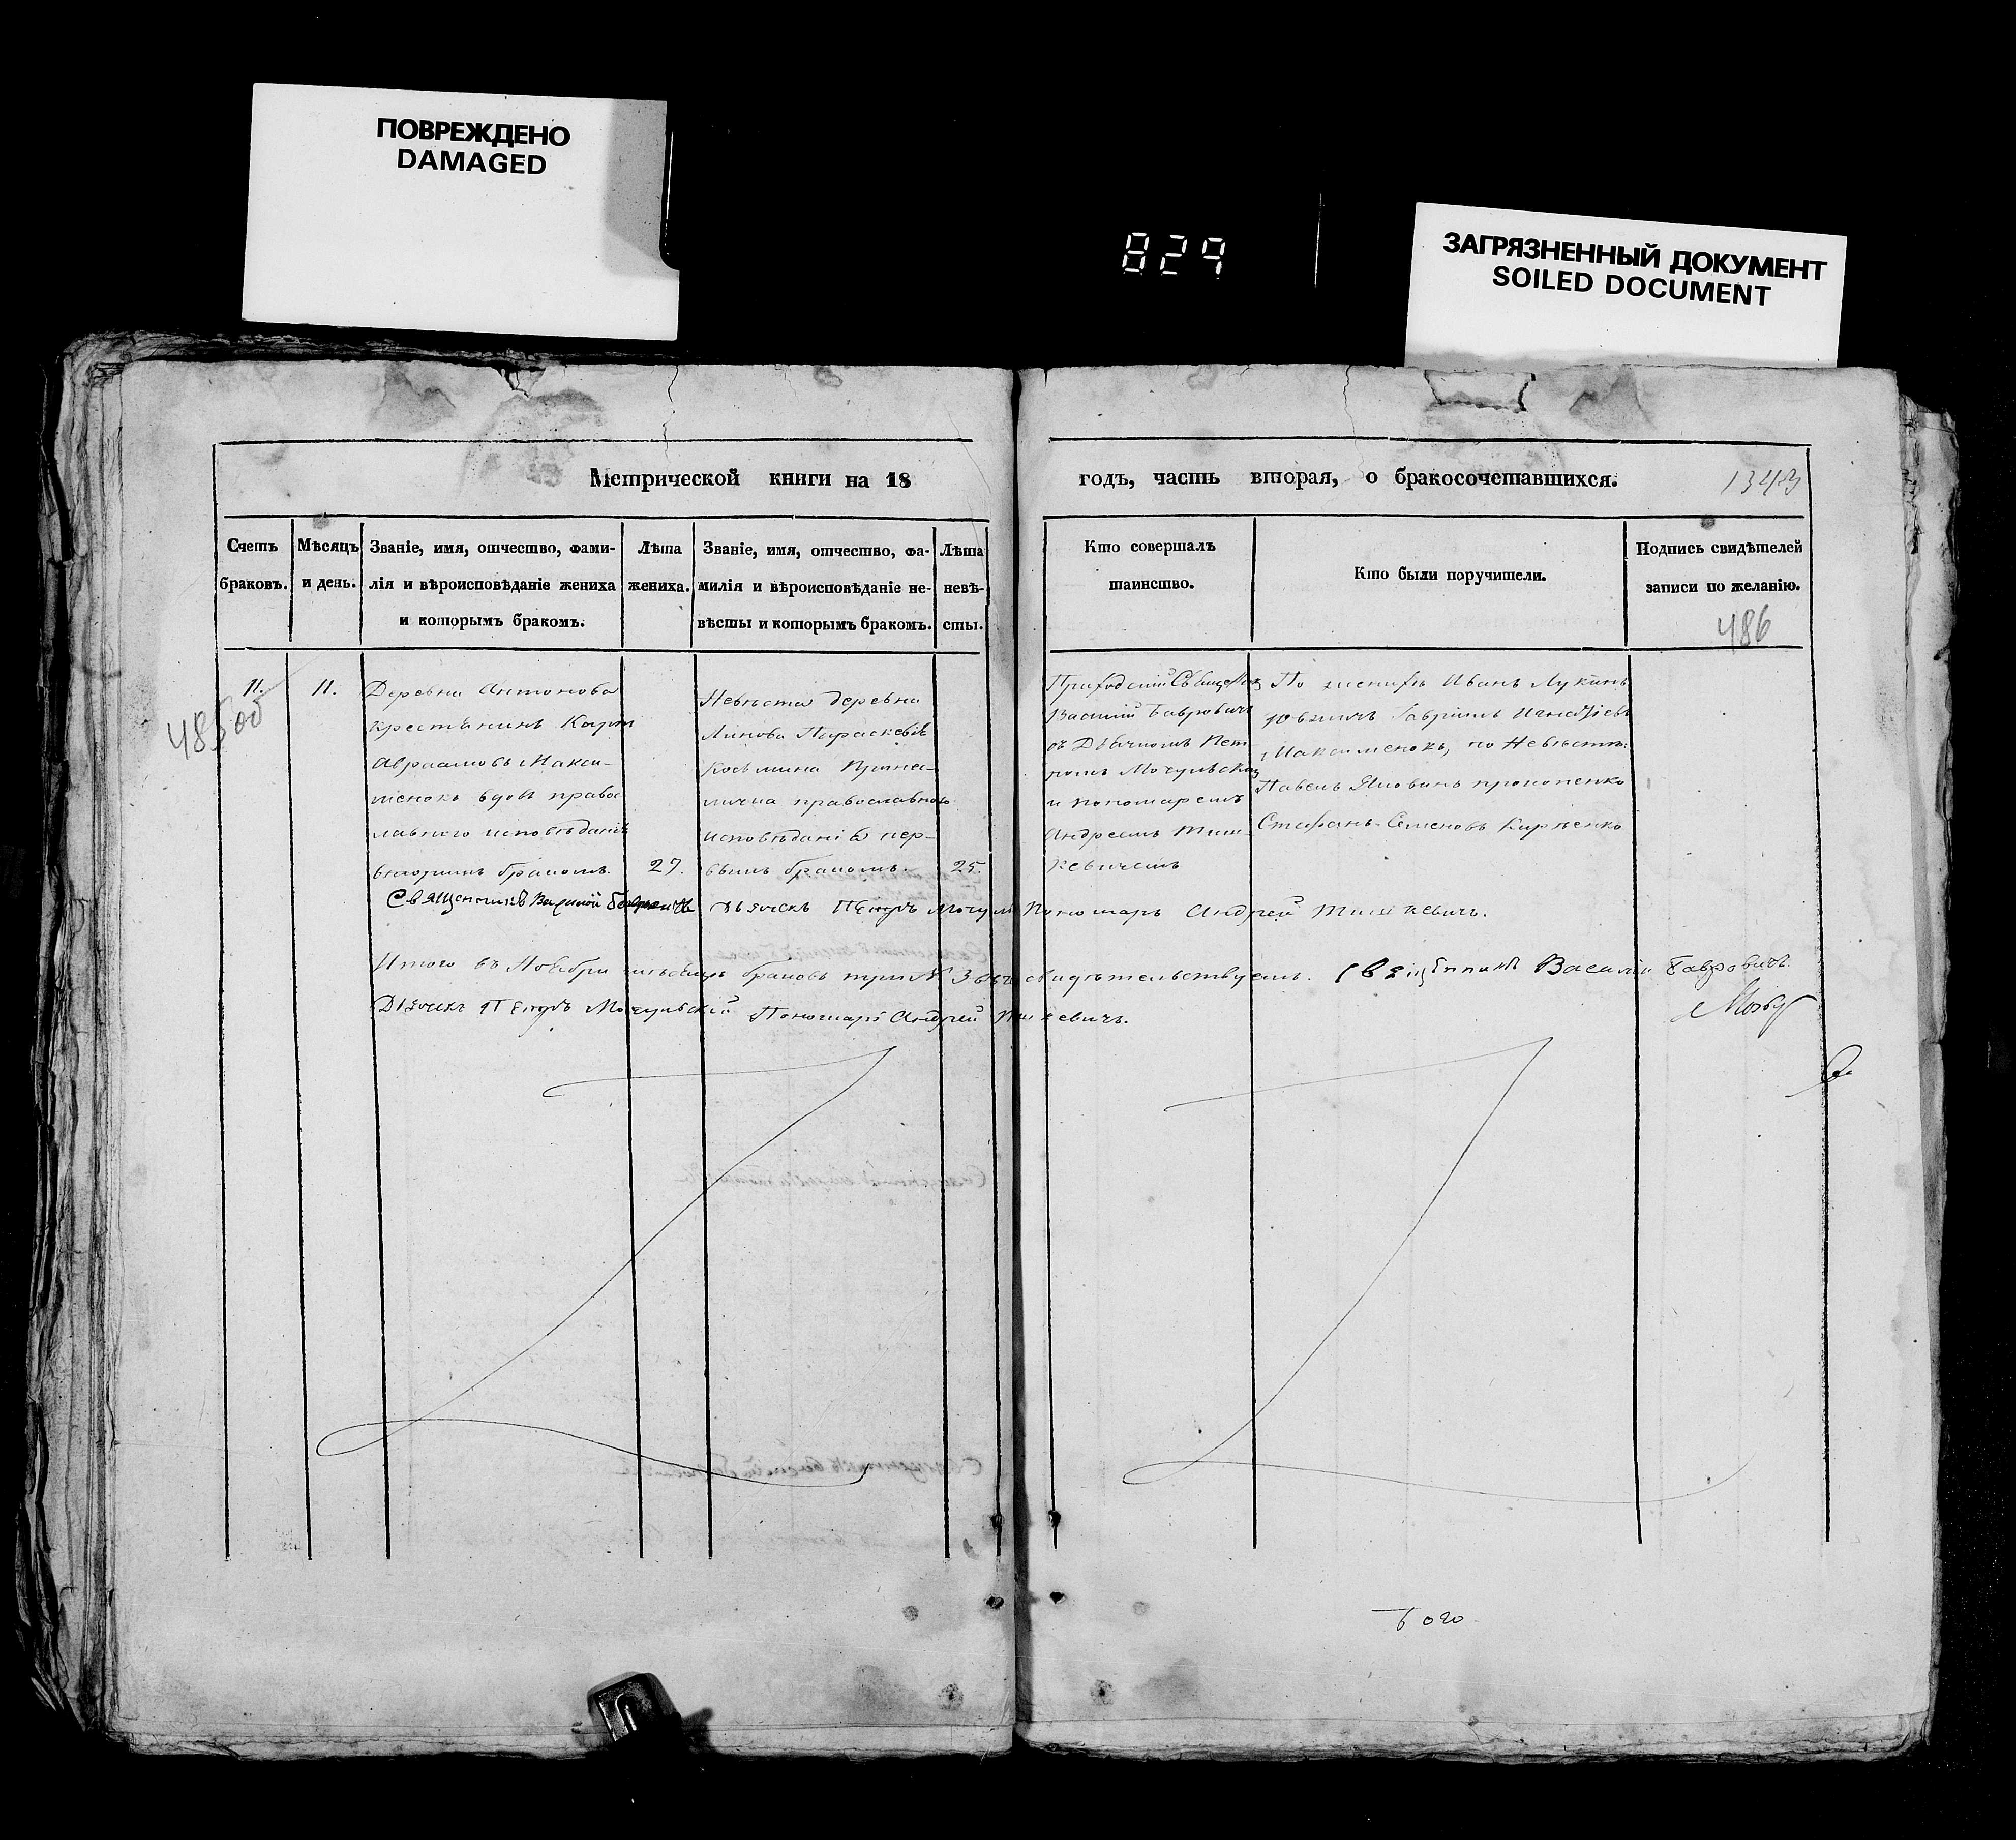 ПОВРЕЖДЕНО
DAMAGED
829
ЗАГРЯЗНЕННЫЙ ДОКУМЕНТ
SOILED DOCUMENT
Метрической книги на 18
годъ, часть вторая, о бракосочетавшихся.
1343
Счетъ
браковъ.
Мѣсяцъ
и день.
Званіе, имя, отчество, фами-
лія и вѣроисповѣданіе жениха
и которымъ бракомъ.
Лѣта
жениха.
Званіе, имя, отчество, фа-
милія и вѣроисповѣданіе не-
вѣсты и которымъ бракомъ.
Лѣта
невѣ-
сты.
Кто совершалъ
таинство.
Кто были поручители.
Подпись свидѣтелей
записи по желанію.
486
485 об
11.
11.
Деревни Антонова
крестьянинъ Карп
Авраамовъ Макси-
менокъ вдовъ правос
лавного исповѣданія
вторымъ бракомъ.
27.
Невѣста деревни
Линова Параскевія
Косьмина
православного
исповѣданія пер-
вымъ бракомъ.
25.
Приходскій Священ
Василій Гавровичъ
съ Дьячкомъ Пет
ромъ Мочульским
и пономаремъ
Андреемъ Тиш
кевичемъ
По женихѣ Иванъ Лукинъ
Гавріилъ Игнатіевъ
Максименокъ, по Невѣстѣ:
Павелъ прокопенко
Стефанъ Семеновъ Карпенко
Священникъ Василій Гавровичъ Дьячекъ Петръ Мочул Пономарь Андрей Тишкевичъ.
Итого въ Ноябрѣ мѣсяцѣ браковъ три № 3 свидѣтельствуемъ. Священникъ Василій Гавровичъ.
Дьячекъ Петръ Мочульскій Пономарь Андрей Тишкевичъ.